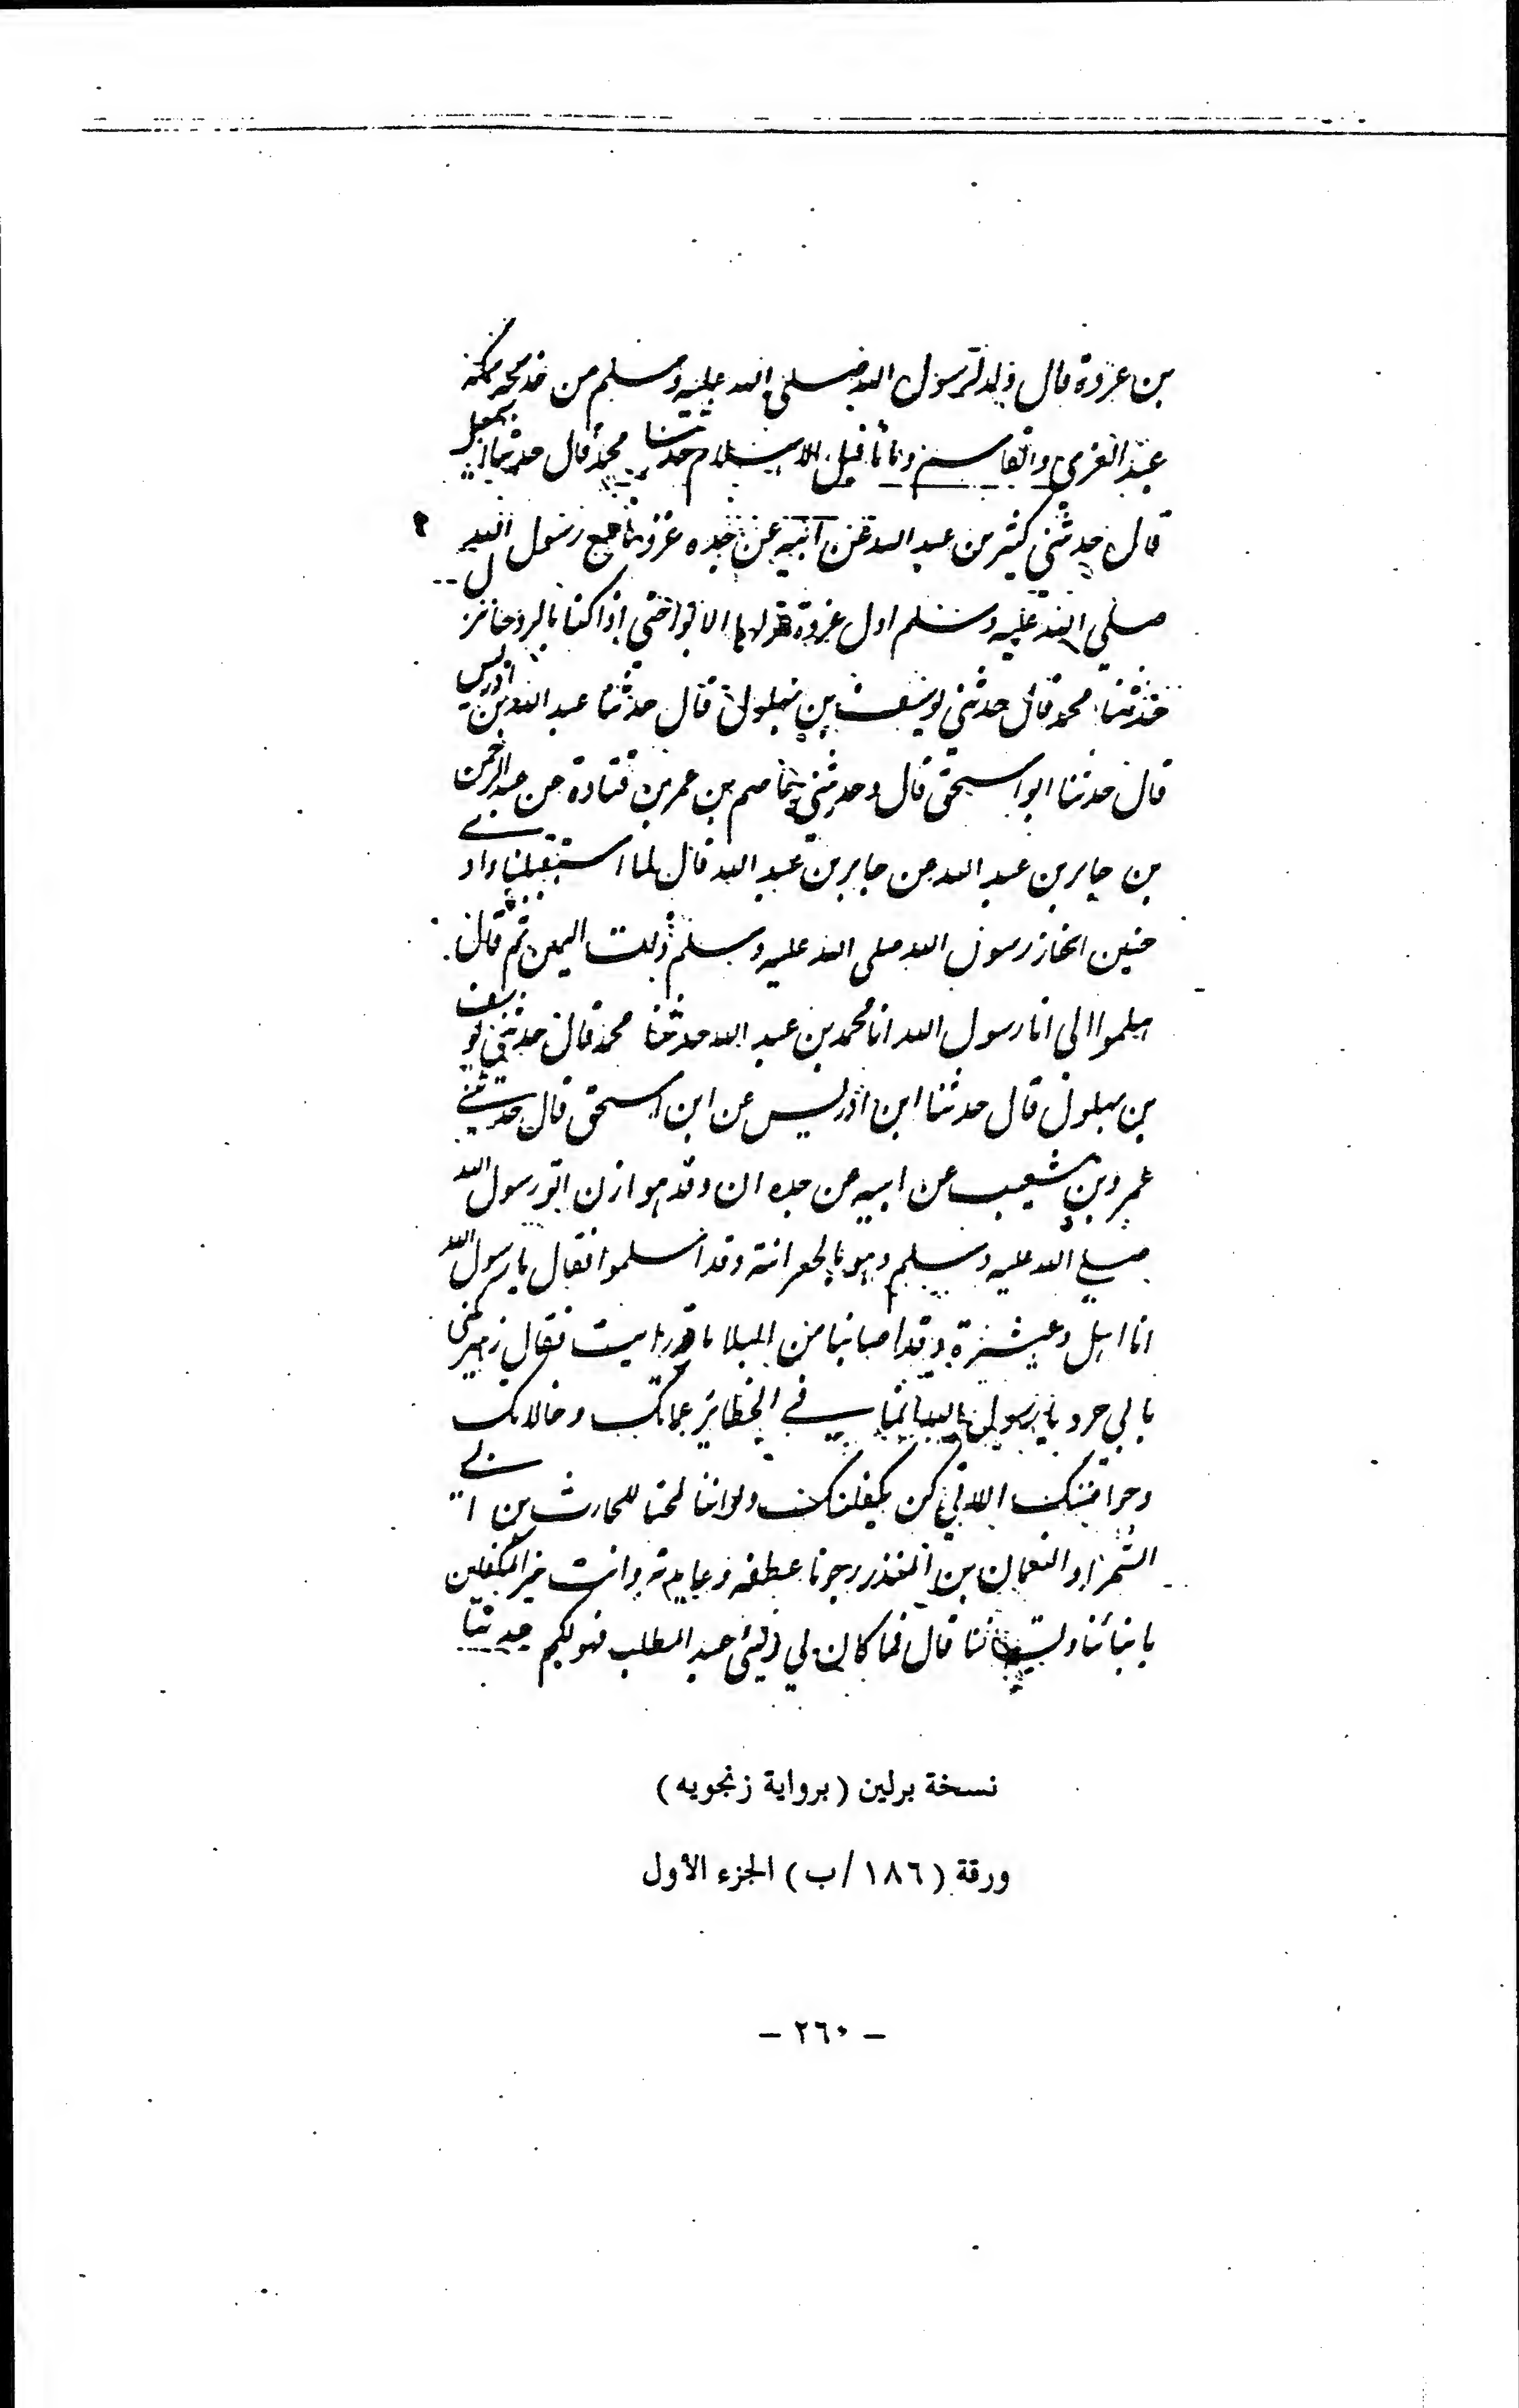 بن عروة قال ولد لرسول الله صلى الله عليه وسلم من خديجة بمكة
عبد العزى والقاسم وماتا قبل الاسلام حدثنا محمد قال حدثنا اسمعيل
قال حدثني كثير من عبد الله عن ابيه عن جده غزونا مع رسول الله
صلي الله عليه وسلم اول غزوة غزاها الابوا حتى اذا كنا بالروحا نزل
حدثنا محمد قال حدثني يوسف بن بهلول قال حدثنا عبد الله بن ادريس
قال حدثنا ابو اسحق قال وحدثني عاصم بن عمر بن قتادة عن عبد الرحمن
بن جابر بن عبد الله عن جابر بن عبد الله قال لما استقبلنا وادي
حنين انحاز رسول الله صلى الله عليه وسلم ذات اليمين ثم قال
هلموا الى انا رسول الله انا محمد بن عبد الله حدثنا محمد قال حدثني يوسف
بن بهلول قال حدثنا ابن ادريس عن ابن اسحق قال حدثني
عمرو بن شعيب عن ابيه عن جده ان وفد هوازن اتو رسول الله
صلي الله عليه وسلم وهو بالجعرانة وقد اسلموا فقال يا رسول الله
انا اهل وعشيرة وقد اصابنا من البلا ما قد رايت فقال زهير يكنى
بابي جرو يا رسول الله انما في الحظاير عماتك وخالاتك
وحواضنك اللاتي كن يكفلنك ولو اننا لمحنا للحارث بن ابي
الشمر او النعمان بن المنذر رجونا عطفه وعايدته وانت خير المكفلين
بابنائنا ونسائنا قال فما كان لي ولبني عبد المطلب فهو لكم حدثنا
نسخة برلين (برواية زنجويه)
ورقة (١٨٦/ب) الجزء الأول
– ٢٦٠ –